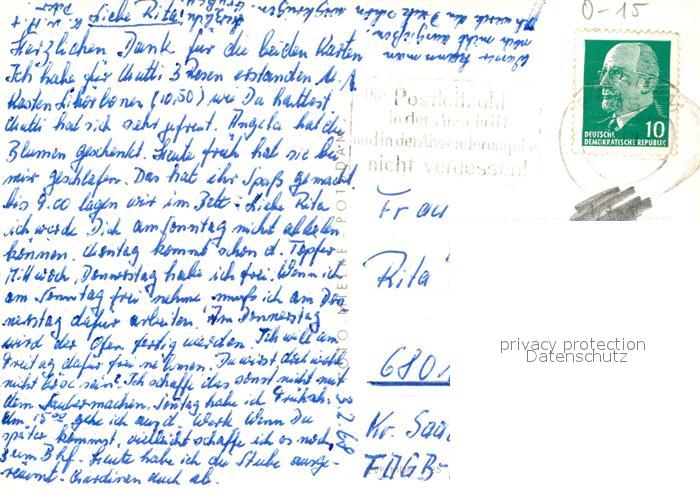 Liebe Rita!
Herzlichen Dank für die beiden Karten
Ich habe für Mutti 3 Rosen erstanden u. 1
Kasten Likörbonen (10,50) wie Du hattest
Mutti hat sich sehr gefreut. Angela hat die
Blumen geschenkt. Heute früh hat sie bei
mir geschlafen. Das hat ihr Spaß gemacht
bis 9.00 lagen wir im Bett. Liebe Rita
ich werde Dich am Sonntag nicht abholen
können. Montag kommt schon d. Töpfer
Mittwoch, Donnerstag habe ich frei. Wenn ich
am Sonntag frei nehme muß ich am Don
nerstag dafür arbeiten. Am Donnerstag
wird der Ofen fertig werden. Ich will am
Freitag dafür frei nehmen. Du wirst doch nicht
böse sein? Ich schaffe das sonst nicht mit
dem Saubermachen. Sonntag habe ich Frühsch.
Um 15.00 gehe ich aus d. Werk. Wenn Du
später kommst, vielleicht schaffe ich es noch
zum Bhf. Heute habe ich die Stube ausge-
räumt. Gardinen auch ab.
0-15
Die Postleitzahl
in der Anschrift
und in der Absenderangabe
nicht vergessen!
DEUTSCHE
DEMOKRATISCHE REPUBLIK
10
Frau
Rita
6801
Kr. Saa
FDGB-
privacy protection
Datenschutz